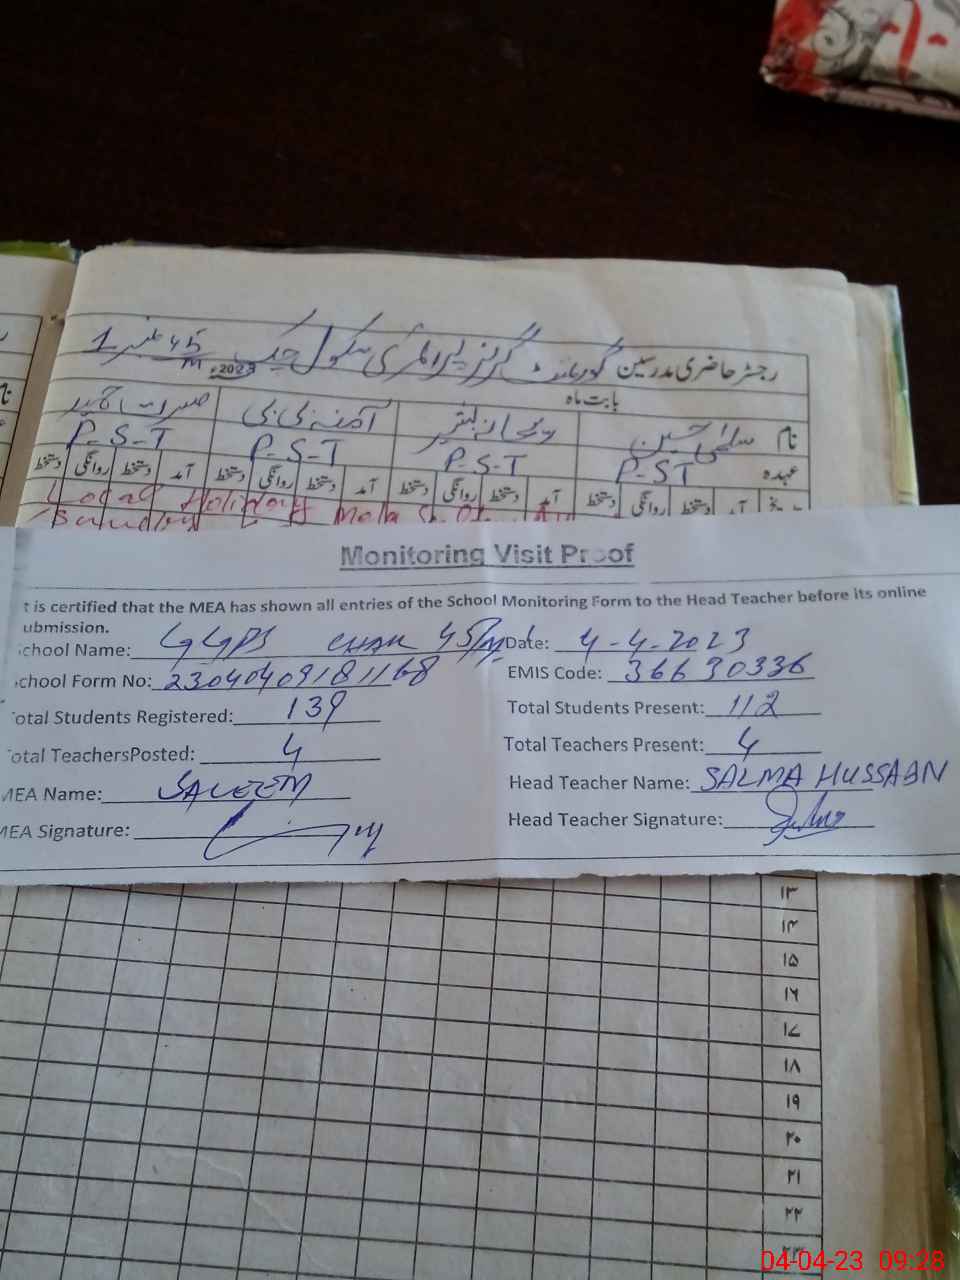 رجسٹر حاضری مدرسین گورنمنٹ گرلز پرائمری سکول چک 45 نمبر 1
M 2023ء
بابت ماہ
نام سلمیٰ حسین آمنہ بی بی
عہدہ P-ST P-S-T P-S-T P-S-T
آمد دستخط روانگی دستخط آمد دستخط روانگی دستخط آمد دستخط روانگی دستخط آمد دستخط روانگی دستخط
Local Holiday Mela
Sunday
Monitoring Visit Proof
t is certified that the MEA has shown all entries of the School Monitoring Form to the Head Teacher before its online
ubmission.
chool Name: GGPS CHAK 45/M Date: 4-4-2023
chool Form No: 23040409181168 EMIS Code: 36630336
otal Students Registered: 139 Total Students Present: 112
otal TeachersPosted: 4 Total Teachers Present: 4
MEA Name: SALEEM Head Teacher Name: SALMA HUSSAIN
MEA Signature: Head Teacher Signature:
۱۳
۱۴
۱۵
۱۶
۱۷
۱۸
۱۹
۲۰
۲۱
۲۲
۲۳
04-04-23 09:28